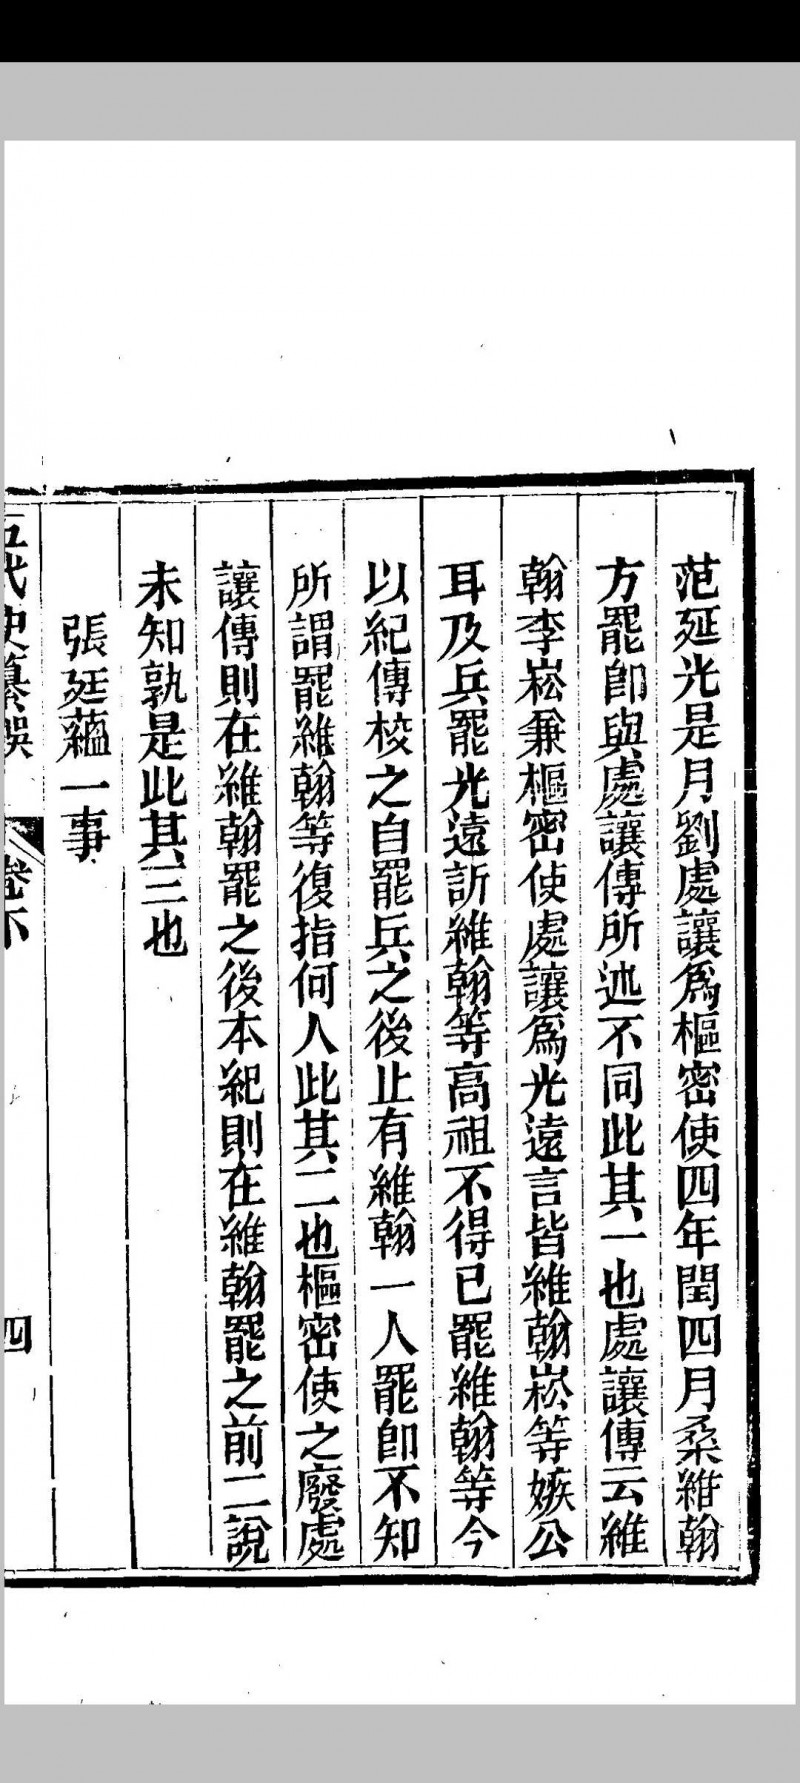 范延光是月劉處讓爲樞密使四年閏四月桑維翰
方罷卽與處讓傳所述不同此其一也處讓傳云維
翰李崧兼樞密使處讓爲光遠言皆維翰崧等嫉公
耳及兵罷光遠訴維翰等高祖不得已罷維翰等今
以紀傳校之自罷兵之後止有維翰一人罷卽不知
所謂罷維翰等復指何人此其二也樞密使之廢處
讓傳則在維翰罷之後本紀則在維翰罷之前二說
未知孰是此其三也
張廷蘊一事
五代史纂誤 卷下 四